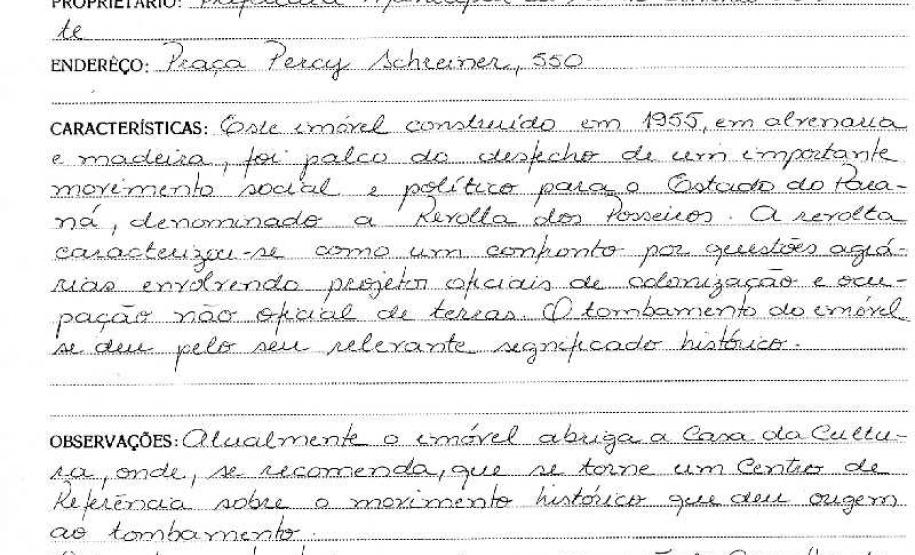 PROPRIETÁRIO: Prefeitura Municipal de
te
ENDERÊÇO: Praça Percy Schreiner, 550
CARACTERÍSTICAS: Este imóvel construído em 1955, em alvenaria
e madeira, foi palco do desfecho de um importante
movimento social e político para o Estado do Para-
ná, denominado a Revolta dos Posseiros. A revolta
caracterizou-se como um confronto por questões agrá-
rias envolvendo projetos oficiais de colonização e ocu-
pação não oficial de terras. O tombamento do imóvel
se deu pelo seu relevante significado histórico.
OBSERVAÇÕES: Atualmente o imóvel abriga a Casa da Cultu-
ra, onde, se recomenda, que se torne um Centro de
Referência sobre o movimento histórico que deu origem
ao tombamento.